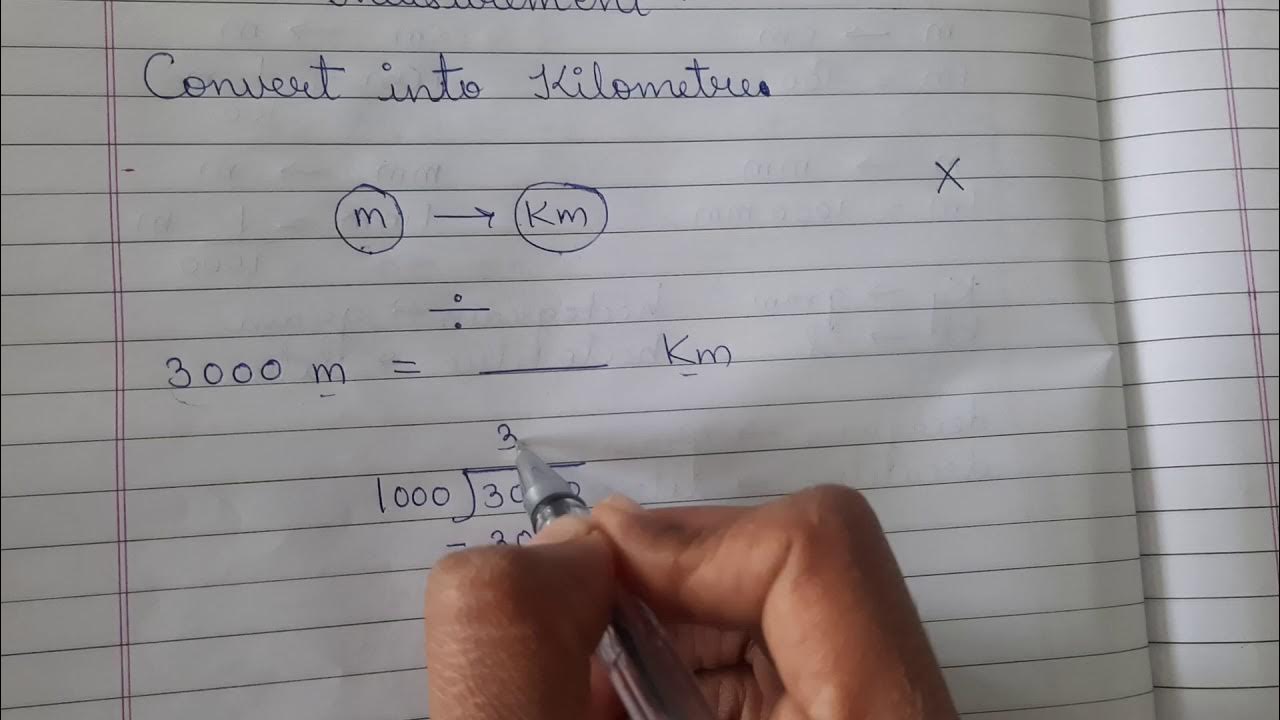 Measurement
Convert into Kilometre.
X
m → Km
÷
3000 m = ____ Km
3
1000 ) 30
- 30